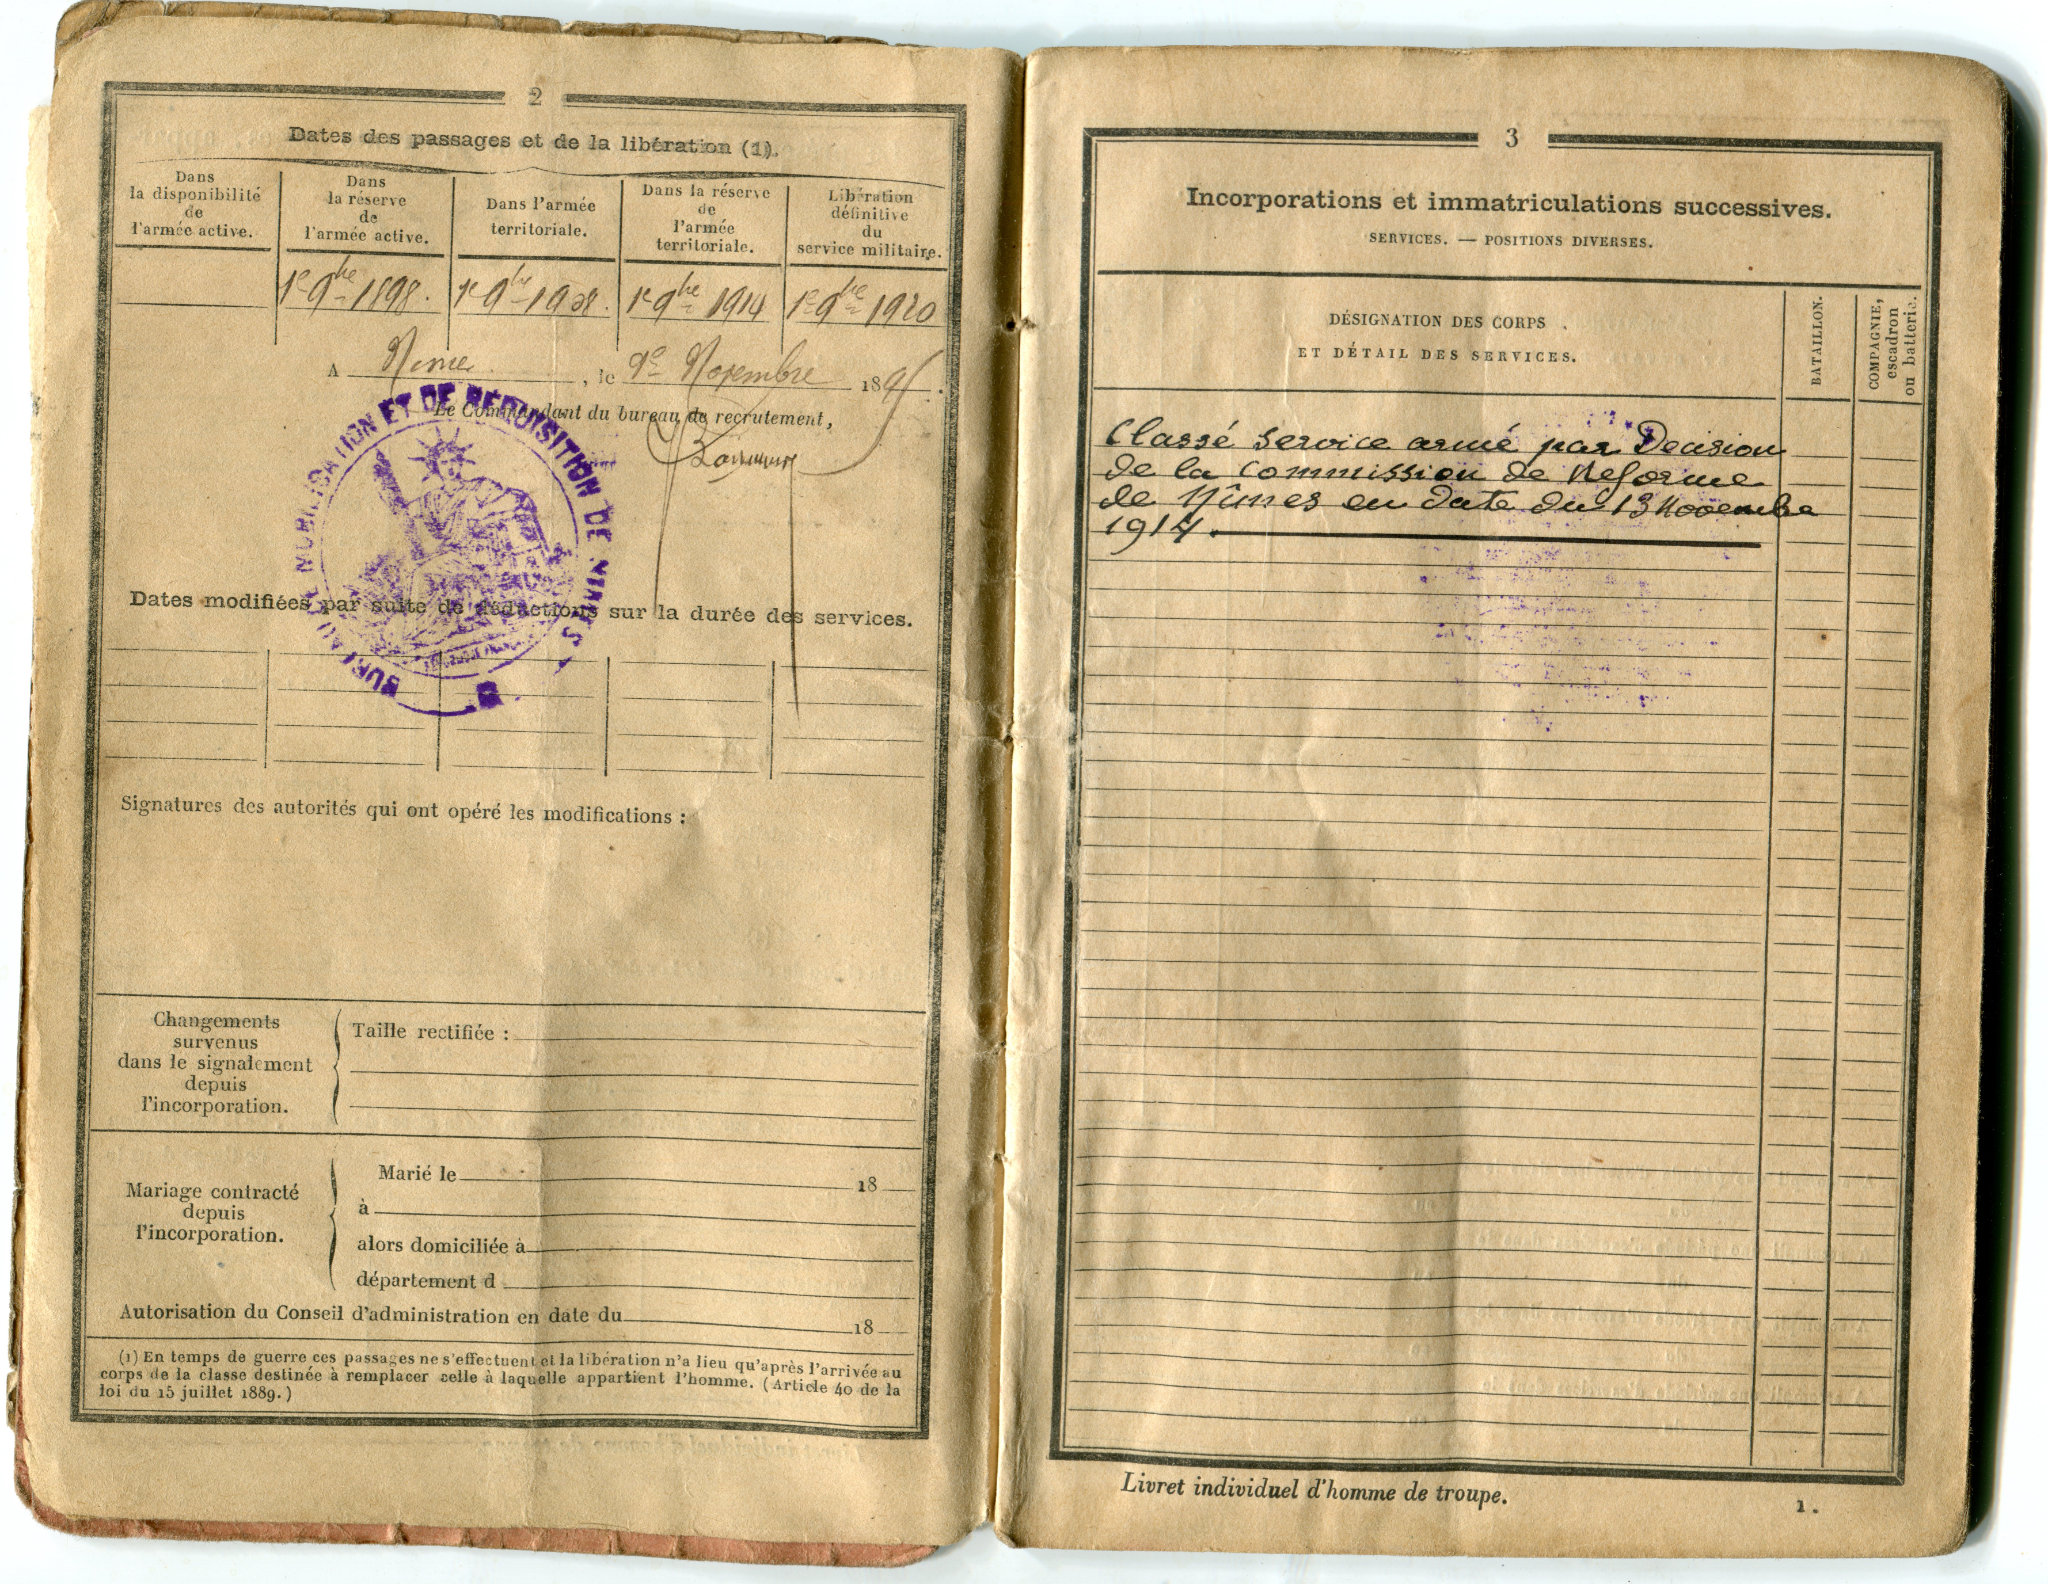 2
Dates des passages et de la libération (1).
Dans
la disponibilité
de
l'armée active.
Dans
la réserve
de
l'armée active.
Dans l'armée
territoriale.
Dans la réserve
de
l'armée
territoriale.
Libération
définitive
du
service militaire.
1e 9bre 1898.
1e 9bre 1908.
1e 9bre 1914
1e 9bre 1920
A Nîmes, le 9e Novembre 1895.
Le Commandant du bureau de recrutement,
BUREAU DE MOBILISATION ET DE RÉQUISITION DE NIMES
Dates modifiées par suite de déductions sur la durée des services.
Signatures des autorités qui ont opéré les modifications :
Changements
survenus
dans le signalement
depuis
l'incorporation.
Taille rectifiée :
Mariage contracté
depuis
l'incorporation.
Marié le 18
à
alors domiciliée à
département d
Autorisation du Conseil d'administration en date du 18
(1) En temps de guerre ces passages ne s'effectuent et la libération n'a lieu qu'après l'arrivée au
corps de la classe destinée à remplacer celle à laquelle appartient l'homme. (Article 40 de la
loi du 15 juillet 1889.)
3
Incorporations et immatriculations successives.
SERVICES. — POSITIONS DIVERSES.
DÉSIGNATION DES CORPS
ET DÉTAIL DES SERVICES.
BATAILLON.
COMPAGNIE,
escadron
ou batterie.
Classé Service armé par Decision
de la Commission de Reforme
de Nîmes en date du 13 Novembre
1914.
Livret individuel d'homme de troupe.
1.